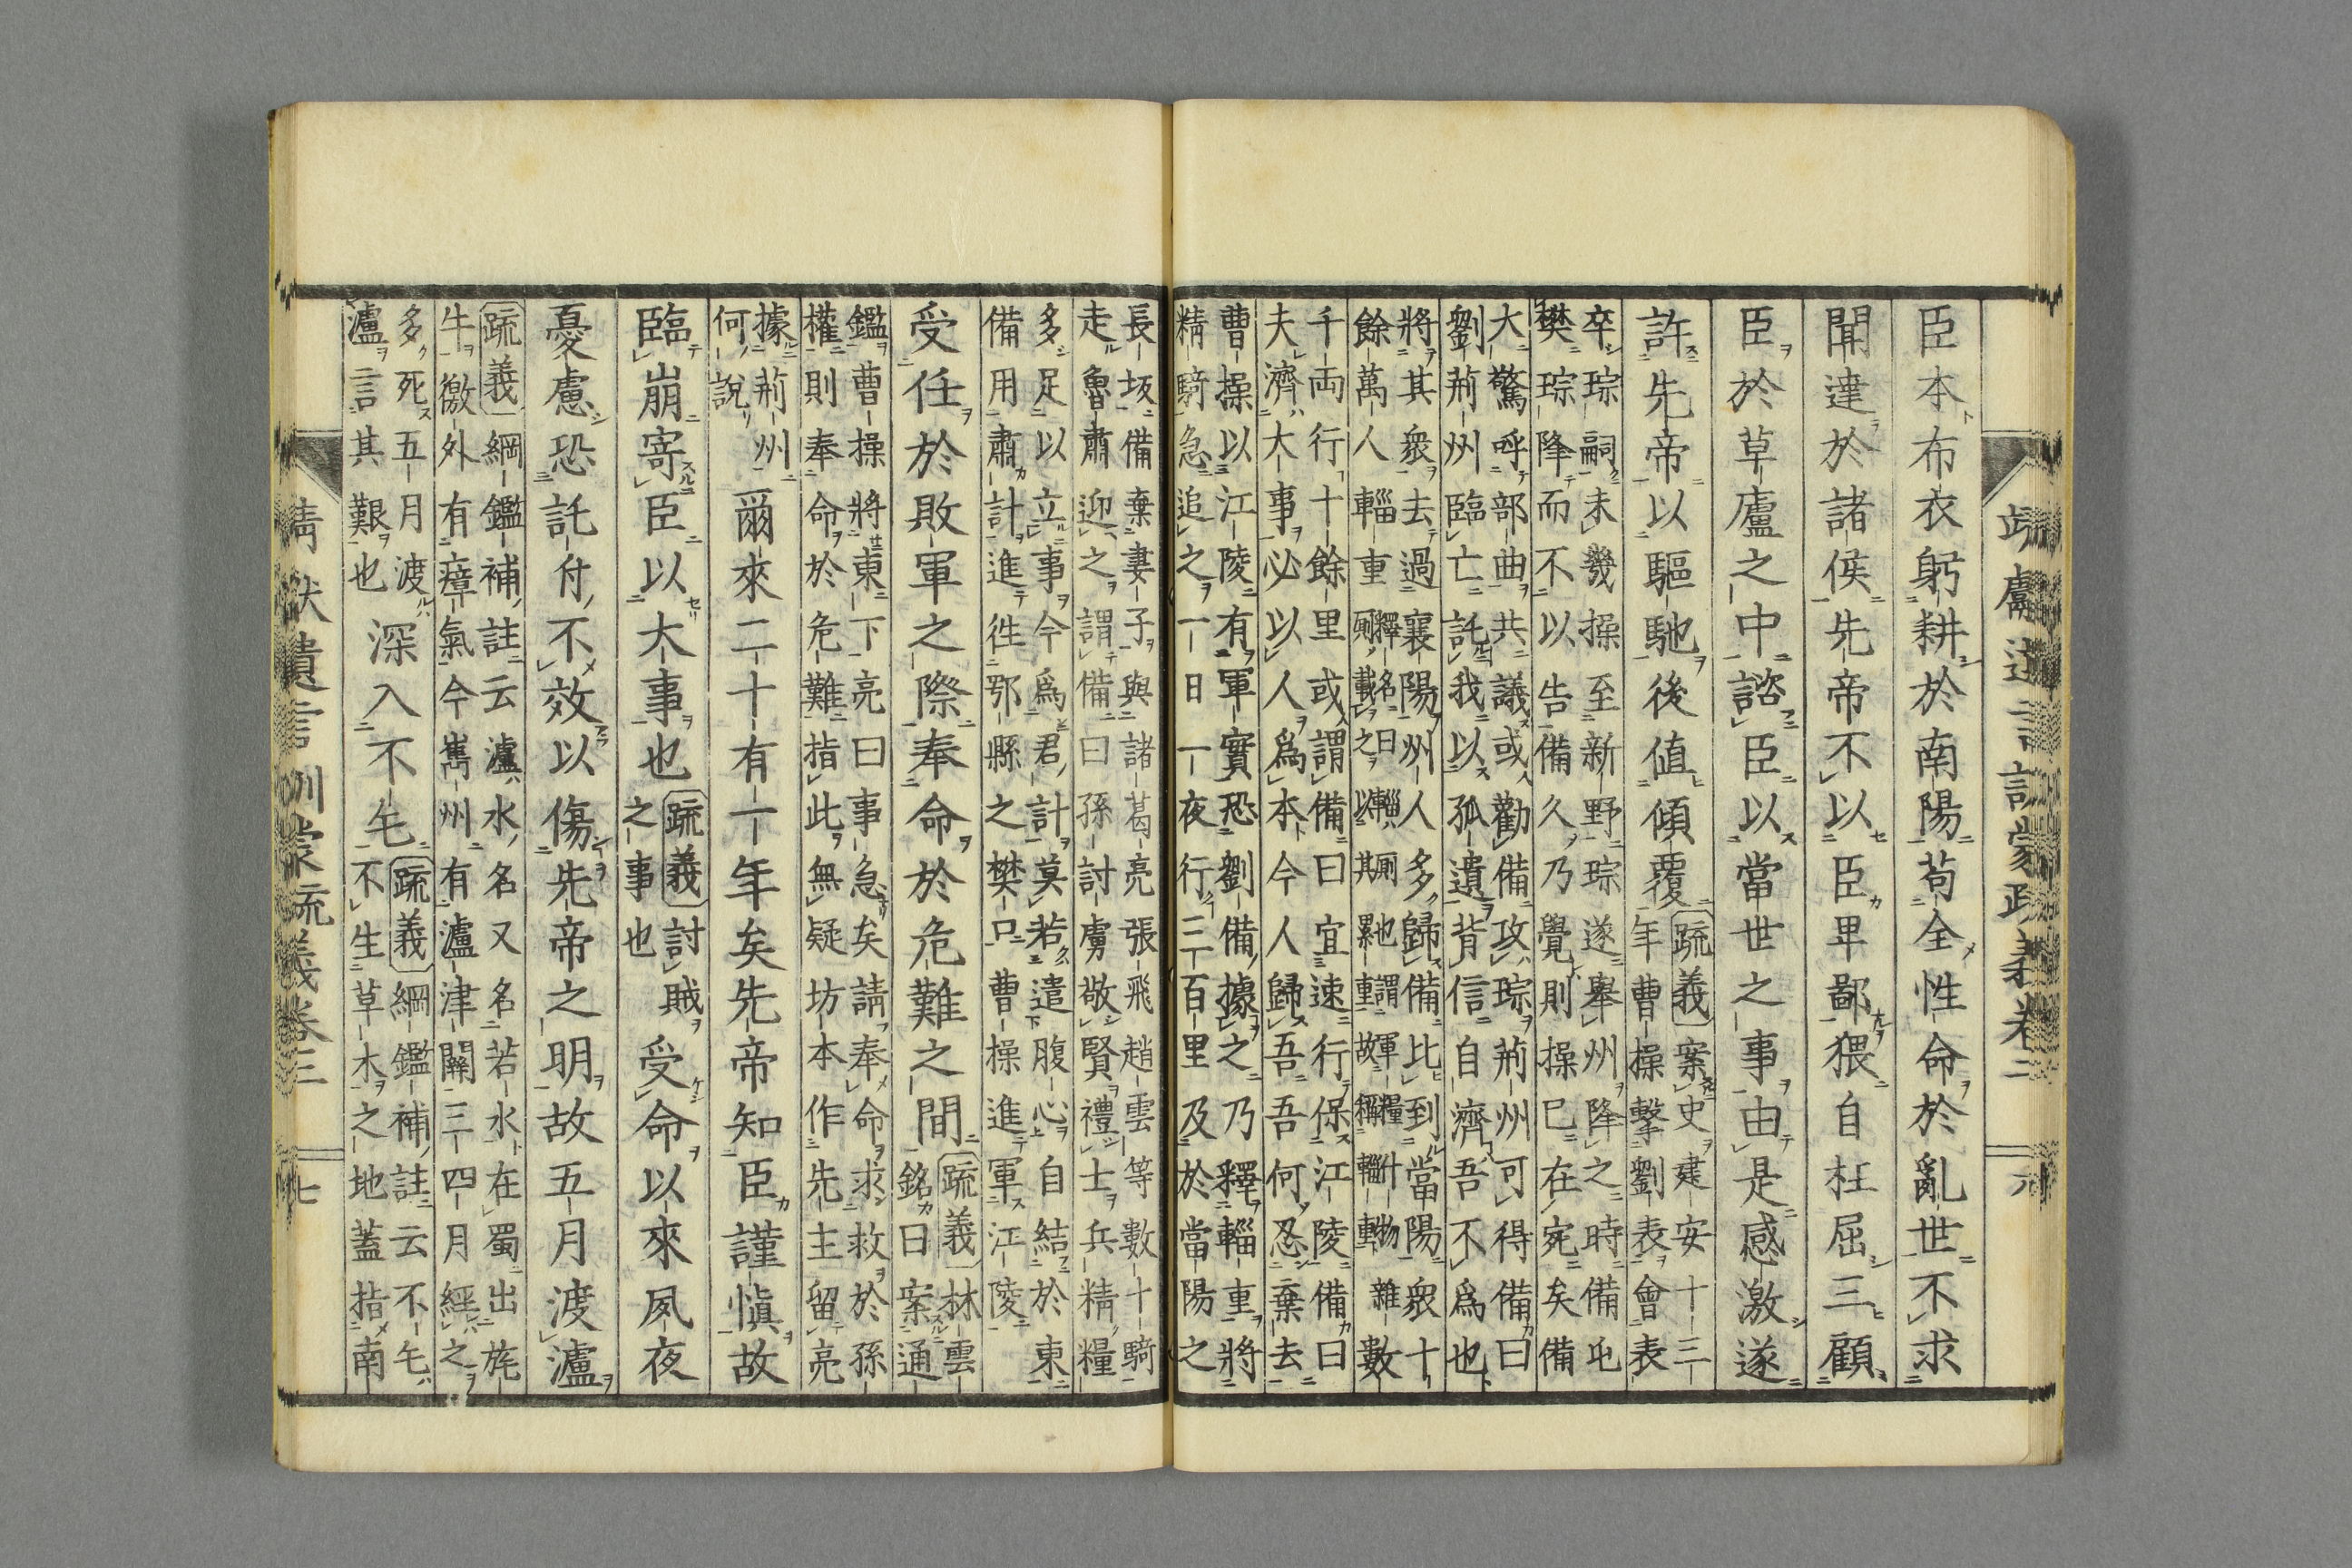 臣本布衣躬耕於南陽苟全性命於亂世不求
聞達於諸侯先帝不以臣卑鄙猥自枉屈三顧
臣於草廬之中諮臣以當世之事由是感激遂
許先帝以驅馳後値傾覆
疏義案史建安十三
年曹操擊劉表會表
卒琮嗣未幾操至新野琮遂舉州降之時備屯
樊琮降而不以告備久乃覺則操已在宛矣備
大驚呼部曲共議或勸備攻琮荊州可得備曰
劉荊州臨亡託我以孤遺背信自濟吾不爲也
將其衆去過襄陽州人多歸備比到當陽衆十
餘萬人輜重
釋名曰輜厠也謂軍糧什物雜
厠載之以其累重故稱輜重
數
千両行十餘里或謂備曰宜速行保江陵備曰
夫濟大事必以人爲本今人歸吾吾何忍棄去
曹操以江陵有軍實恐劉備據之乃釋輜重將
精騎急追之一日一夜行三百里及於當陽之
長坂備棄妻子與諸葛亮張飛趙雲等數十騎
走魯肅迎之謂備曰孫討虜敬賢禮士兵精糧
多足以立事今爲君計莫若遣腹心自結於東
備用肅計進徃鄂縣之樊口曹操進軍江陵
受任於敗軍之際奉命於危難之間
疏義林雲
銘曰案通
鑑曹操將東下亮曰事急矣請奉命求救於孫
權則奉命於危難指此無疑坊本作先主留亮
據荊州
何說
爾來二十有一年矣先帝知臣謹愼故
臨崩寄臣以大事也
疏義討賊
之事也
受命以來夙夜
憂慮恐託付不效以傷先帝之明故五月渡瀘
疏義綱鑑補註云瀘水名又名若水在蜀出旄
牛徼外有瘴氣今巂州有瀘津關三四月經之
多死五月渡
瀘言其艱也
深入不毛
疏義綱鑑補註云不毛
不生草木之地蓋指南
靖獻遺言訓蒙疏義卷三 七